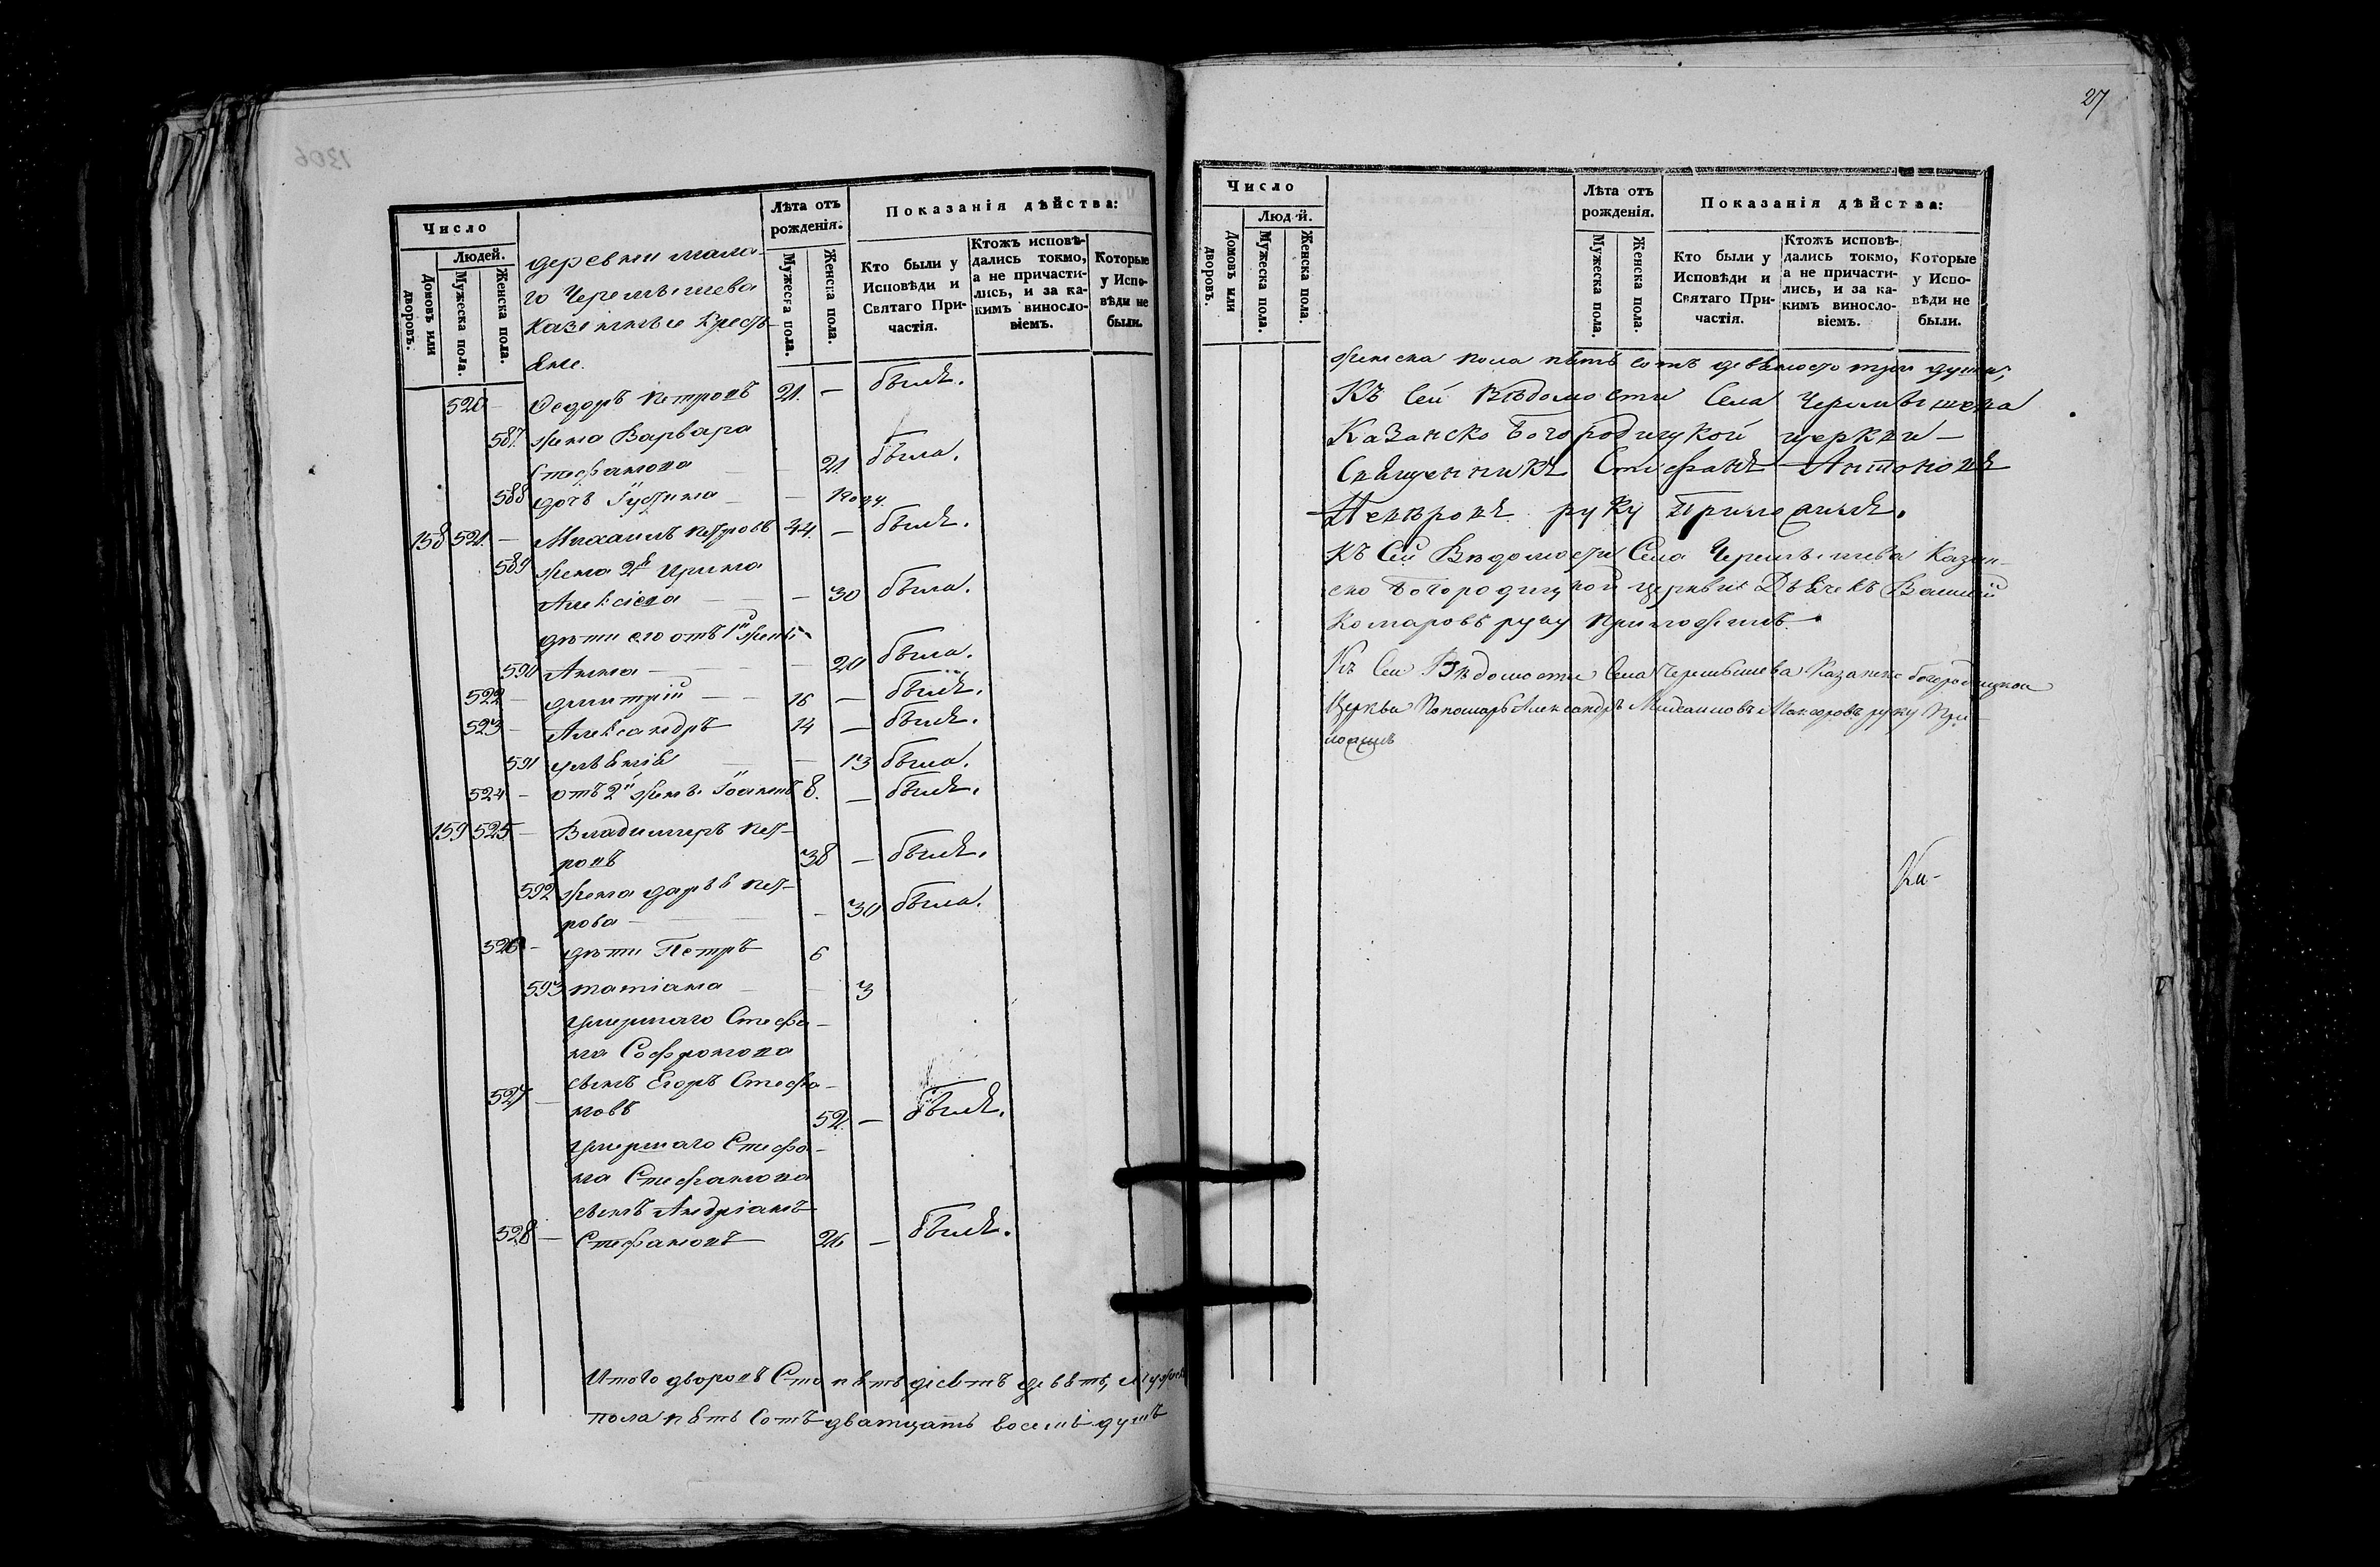 Число
Людей.
Домовъ или дворовъ.
Мужеска пола.
Женска пола.
деревни мала-
го Черемышева
казенные крестъ-
яне.
Лѣта отъ рожденія.
Мужеска пола.
Женска пола.
Показанія дѣйства:
Кто были у Исповѣди и Святаго При-частія.
Ктожъ исповѣ-дались токмо, а не причасти-лись, и за ка-кимъ винosло-віемъ.
Которые у Испо-вѣди не были.
520 — Ѳедоръ Петровъ 21. — былъ.
587. жена Варвара
Стефанова — 21 была.
588 дочь Іустина — 1 году
158 521. — Михаилъ Петровъ 44. — былъ.
589 жена 2я Ирина
Алексіева — 30 была.
дѣти его отъ 1й жены
590 Анна — 20 была.
522 — Димитрій — 16 — былъ.
523 — Александръ 14 — былъ.
591 — 13 была.
524 — отъ 2й жены Іоаннъ 8. — былъ.
159 525 — Владимиръ Пет-
ровъ 38 — былъ.
592 жена Дарья Пет-
рова — 30 была.
526 — дѣти Петръ 6
593 татіана — 3
умершаго Стефа-
на Софронова
527 — сынъ Егоръ Стефа-
новъ 52. — былъ.
умершаго Стефа-
на Стефанова
сынъ Андріанъ
528 — Стефановъ 26 — былъ.
Итого дворовъ Сто пять десятъ девять, мужеска
пола пять Сотъ дватцать восемь душъ
27
Число
Людей.
Домовъ или дворовъ.
Мужеска пола.
Женска пола.
Лѣта отъ рожденія.
Мужеска пола.
Женска пола.
Показанія дѣйства:
Кто были у Исповѣди и Святаго При-частія.
Ктожъ исповѣ-дались токмо, а не причасти-лись, и за ка-кимъ винoсло-віемъ.
Которые у Испо-вѣди не были.
женска пола пять сотъ девяносто три души;
Къ Сей Вѣдомости Села Черемышева
Казанско Богородицкой церкви —
Священникъ Стефанъ Антоновъ
руку Приложилъ.
Къ Сей Вѣдомости Села Черемышева Казан-
ско Богородицкой церкви Дьячекъ Василій
Комаровъ руку приложилъ.
Къ Сей Вѣдомости Села Черемышева Казанско богородицкой
Церкви Пономарь Александръ Михаиловъ руку При-
ложилъ